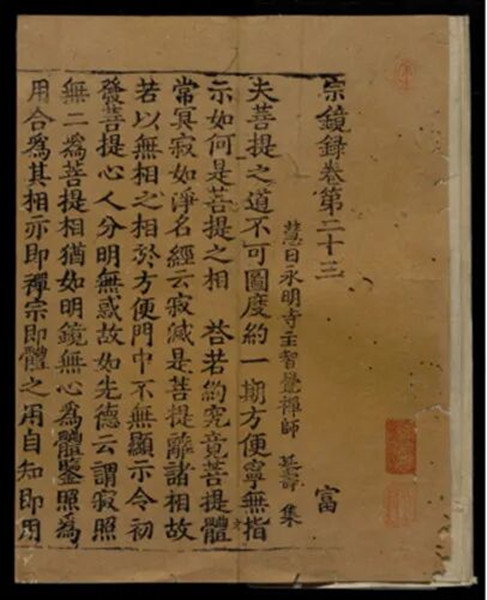 宗鏡録卷第二十三 富
慧日永明寺主智覺禪師 延壽 集
夫菩提之道不可圖度約一期方便寧無指
示如何是菩提之相 荅若約究竟菩提體
常冥寂如淨名經云寂滅是菩提離諸相故
若以無相之相於方便門中不無顯示令初
發菩提心人分明無惑故如先德云謂寂照
無二為菩提相猶如明鏡無心為體鑒照為
用合為其相亦即禪宗即體之用自知即用